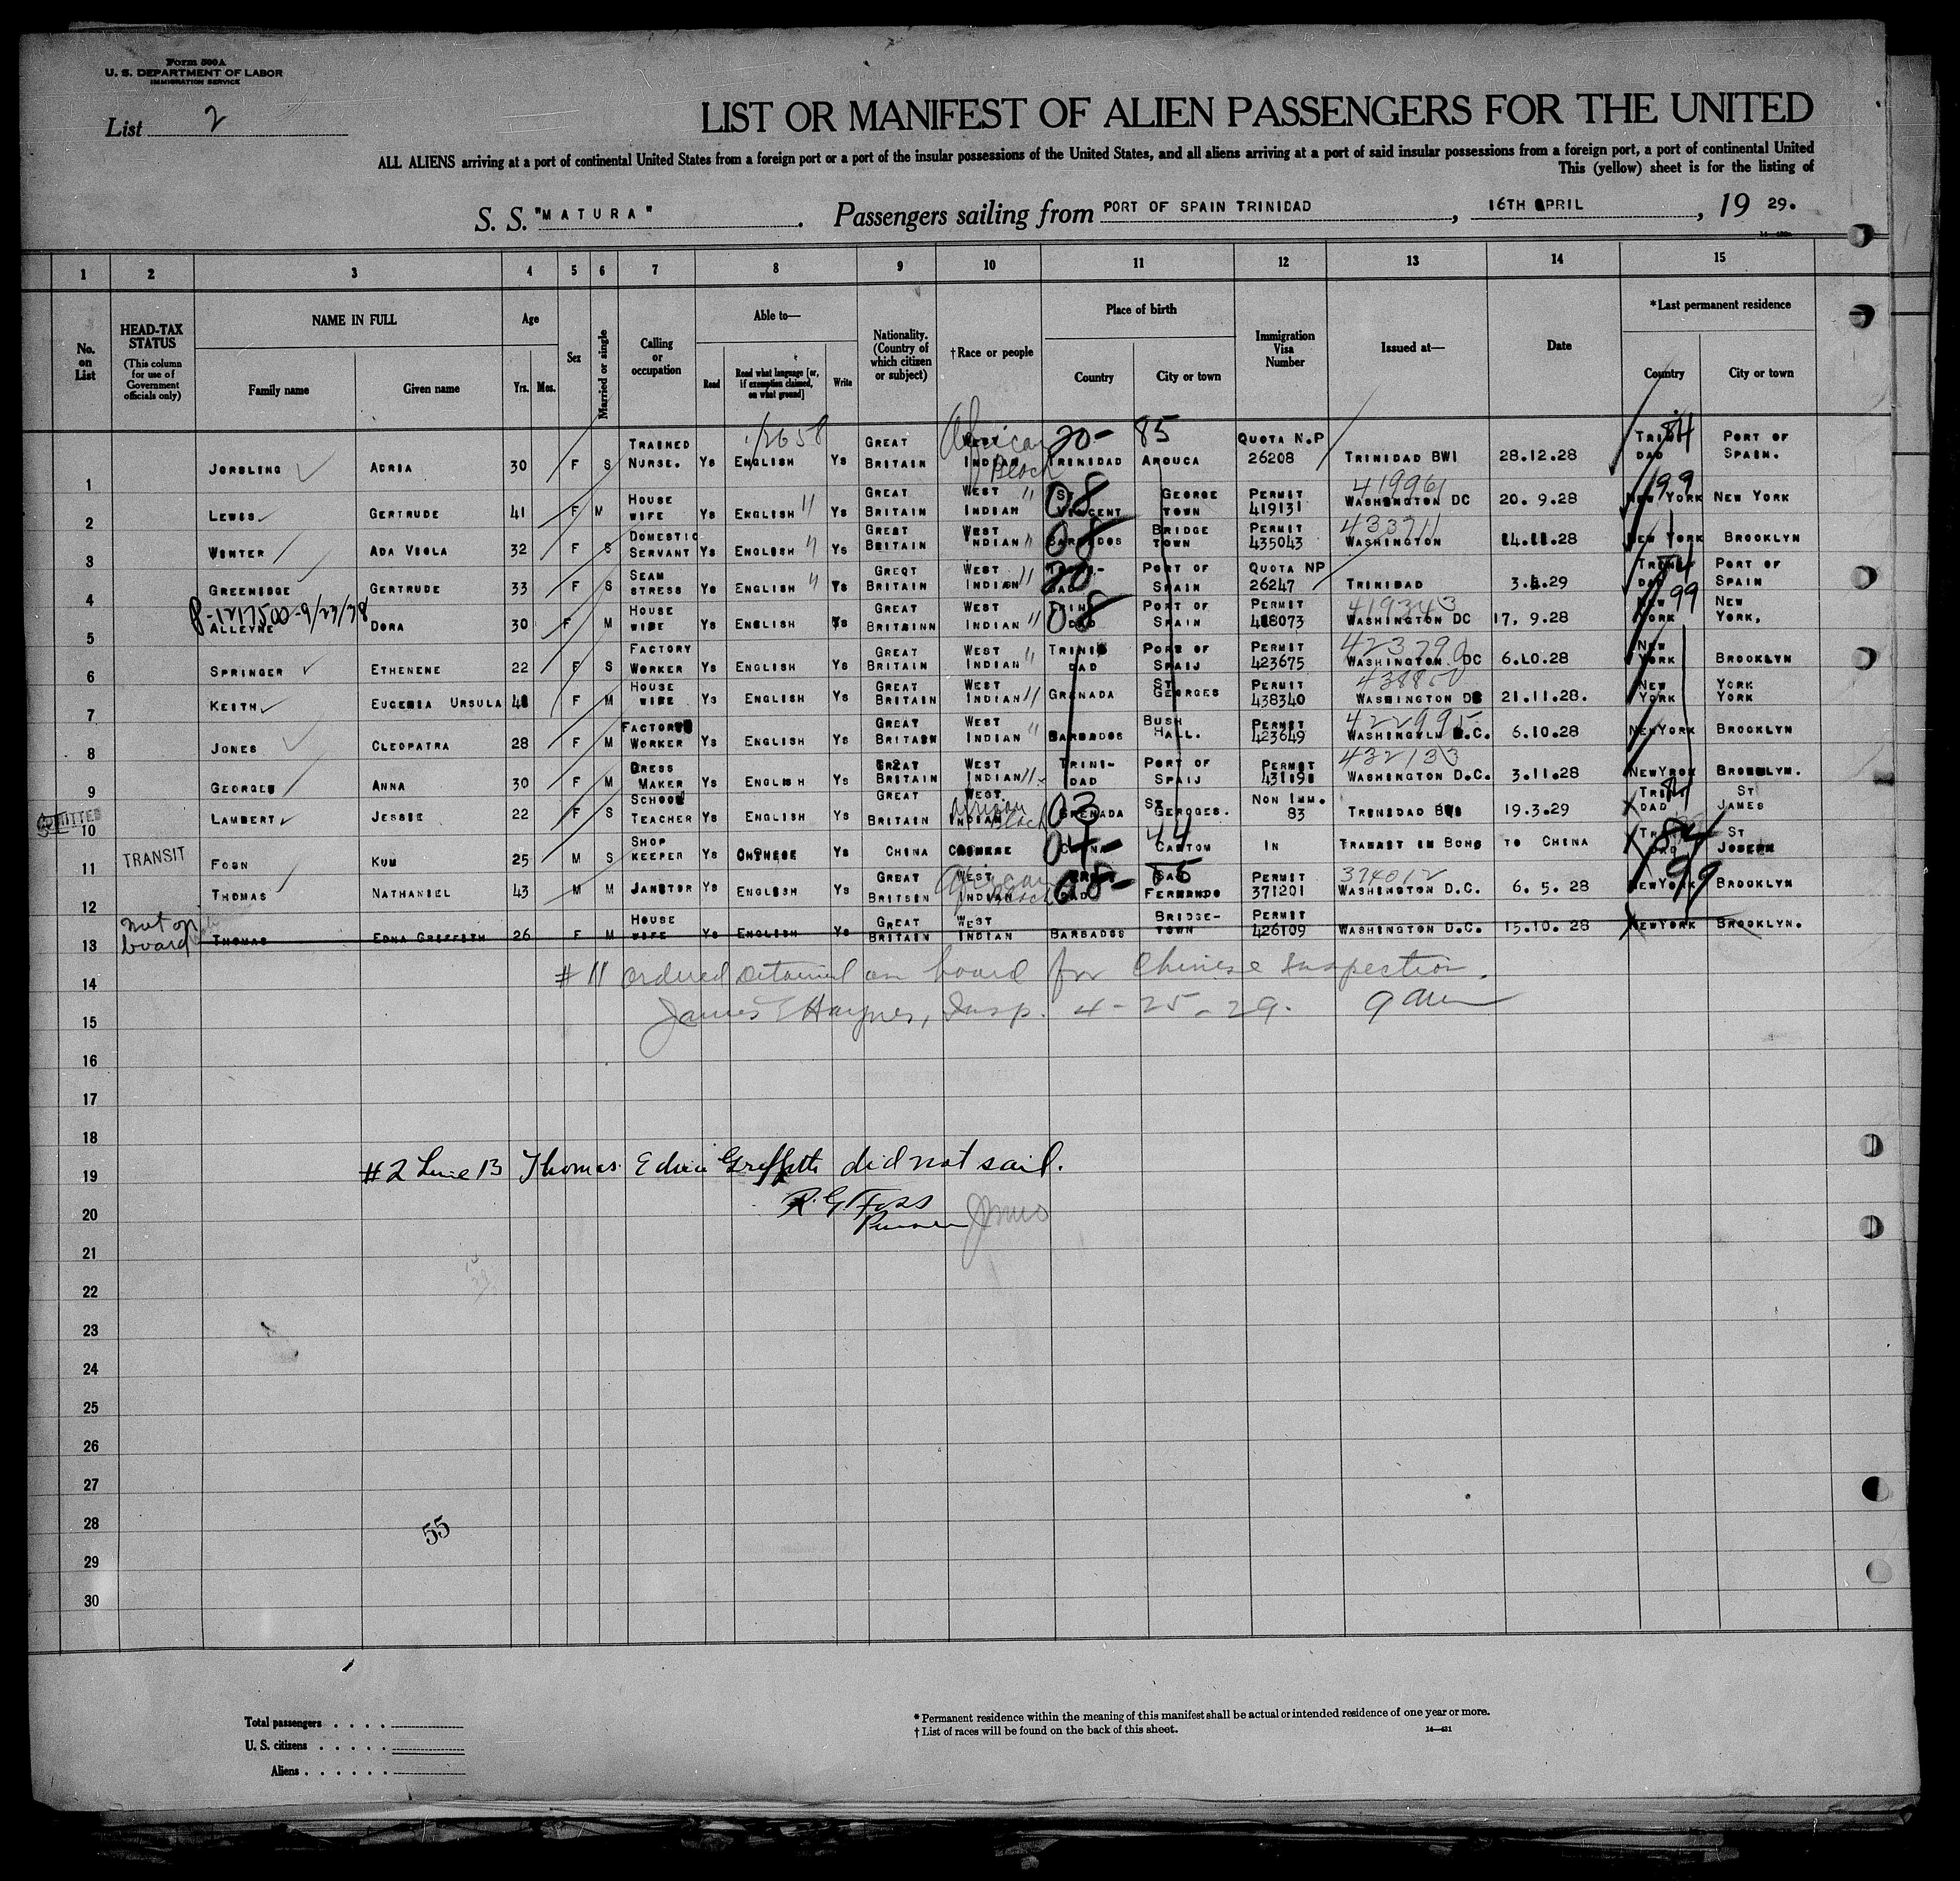 Form 500A
U. S. DEPARTMENT OF LABOR
IMMIGRATION SERVICE
List 2
LIST OR MANIFEST OF ALIEN PASSENGERS FOR THE UNITED
ALL ALIENS arriving at a port of continental United States from a foreign port or a port of the insular possessions of the United States, and all aliens arriving at a port of said insular possessions from a foreign port, a port of continental United
This (yellow) sheet is for the listing of
S. S. "MATURA". Passengers sailing from PORT OF SPAIN TRINIDAD, 16TH APRIL, 19 29.
1 2 3 4 5 6 7 8 9 10 11 12 13 14 15
No. on List
HEAD-TAX STATUS (This column for use of Government officials only)
NAME IN FULL Family name Given name
Age Yrs. Mos.
Sex
Married or single
Calling or occupation
Able to— Read Read what language [or, if exemption claimed, on what ground] Write
Nationality. (Country of which citizen or subject)
†Race or people
Place of birth Country City or town
Immigration Visa Number
Issued at—
Date
*Last permanent residence Country City or town
1 JORSLING ADRIA 30 F S TRAINED NURSE. YS ENGLISH YS GREAT BRITAIN WEST INDIAN African Black TRINIDAD 20- AROUCA 85 QUOTA N.P 26208 TRINIDAD BWI 28.12.28 TRINIDAD 84 PORT OF SPAIN.
2 LEWIS GERTRUDE 41 F M HOUSE WIFE YS ENGLISH YS GREAT BRITAIN WEST INDIAN " ST VINCENT 08 GEORGE TOWN PERMIT 419131 419961 WASHINGTON DC 20. 9.28 NEW YORK 99 NEW YORK
3 WINTER ADA VIOLA 32 F S DOMESTIC SERVANT YS ENGLISH YS GREAT BRITAIN WEST INDIAN " BARBADOS 08 BRIDGE TOWN PERMIT 435043 WASHINGTON 28 NEW YORK BROOKLYN
4 GREENIDGE GERTRUDE 33 F S SEAM STRESS YS ENGLISH YS GREAT BRITAIN WEST INDIAN " TRINI-DAD 20 PORT OF SPAIN QUOTA NP 26247 TRINIDAD 29 TRINIDAD PORT OF SPAIN
5 ALLEYNE DORA 30 F M HOUSE WIFE YS ENGLISH YS GREAT BRITAINN WEST INDIAN " TRINIDAD 08 PORT OF SPAIN PERMIT 419343 WASHINGTON DC 17. 9.28 NEW YORK 99 NEW YORK.
6 SPRINGER ETHENENE 22 F S FACTORY WORKER YS ENGLISH YS GREAT BRITAIN WEST INDIAN " TRINIDAD PORT OF SPAIJ PERMIT 423675 WASHINGTON. DC 6.10.28 NEW YORK BROOKLYN
7 KEITH EUGENIA URSULA F M HOUSE WIFE YS ENGLISH YS GREAT BRITAIN WEST INDIAN " GRENADA ST GEORGES PERMIT 438340 438850 WASHINGTON DC 21.11.28. NEW YORK YORK YORK
8 JONES CLEOPATRA 28 F M FACTORY WORKER YS ENGLISH YS GREAT BRITAIN WEST INDIAN " BARBADOS BUSH HALL. PERMIT 423649 422995 D.C. 6.10.28 NEWYORK BROOKLYN
9 GEORGES ANNA 30 F M DRESS MAKER YS ENGLISH YS GREAT BRITAIN WEST INDIAN " TRINI-DAD PORT OF SPAIJ PERMIT 432133 WASHINGTON D.C. 3.11.28 NEWYROK BROOKLYN.
ADMITTED
10 LAMBERT JESSIE 22 F S SCHOOL TEACHER YS ENGLISH YS GREAT BRITAIN WEST. INDIAN African Black GRENADA 03 ST GEROGES. NON IMM. 83 TRINIDAD BWI 19.3.29 TRINIDAD 84 ST JAMES
11 TRANSIT FOON KUM 25 M S SHOP KEEPER YS CHINESE YS CHINA CHINESE CHINA 04- CANTOM 44 IN TRANSIT IN BOND TO CHINA ST JOSEPH
12 THOMAS NATHANIEL 43 M M JANITOR YS ENGLISH YS GREAT BRITAIN WEST INDIAN African Black 08- SAN FERNANDO PERMIT 371201 374012 WASHINGTON D.C. 6. 5. 28 NEWYORK 99 BROOKLYN
13 not on board THOMAS EDNA GRIFFITH 26 F M HOUSE WIFE YS ENGLISH YS GREAT BRITAIN WEST INDIAN BARBADOS BRIDGE-TOWN PERMIT 426109 WASHINGTON D.C. 15.10. 28 NEWYORK BROOKLYN.
14 #11 ordered detained on board for Chinese inspection.
15 James E Haynes, Insp. 4-25-29. 9 am
16
17
18
19 #2 Line 13 Thomas Edna Griffith did not sail.
20 R. G. Foss Purser
21
22
23
24
25
26
27
28 55
29
30
Total passengers
U. S. citizens
Aliens
* Permanent residence within the meaning of this manifest shall be actual or intended residence of one year or more.
† List of races will be found on the back of this sheet. 14—431